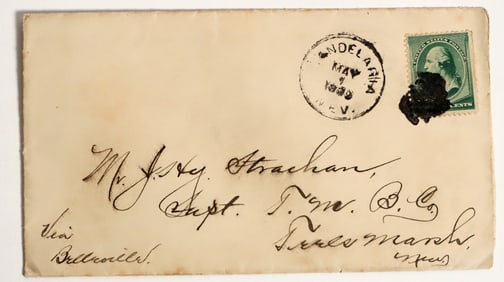 CANDELARIA
MAY
NEV.
UNITED STATES POSTAGE
CENTS
Mr. J. Hy. Strachan,
Supt. T. M. B. Co.
Teels Marsh.
Nev.
Via
Belleville.